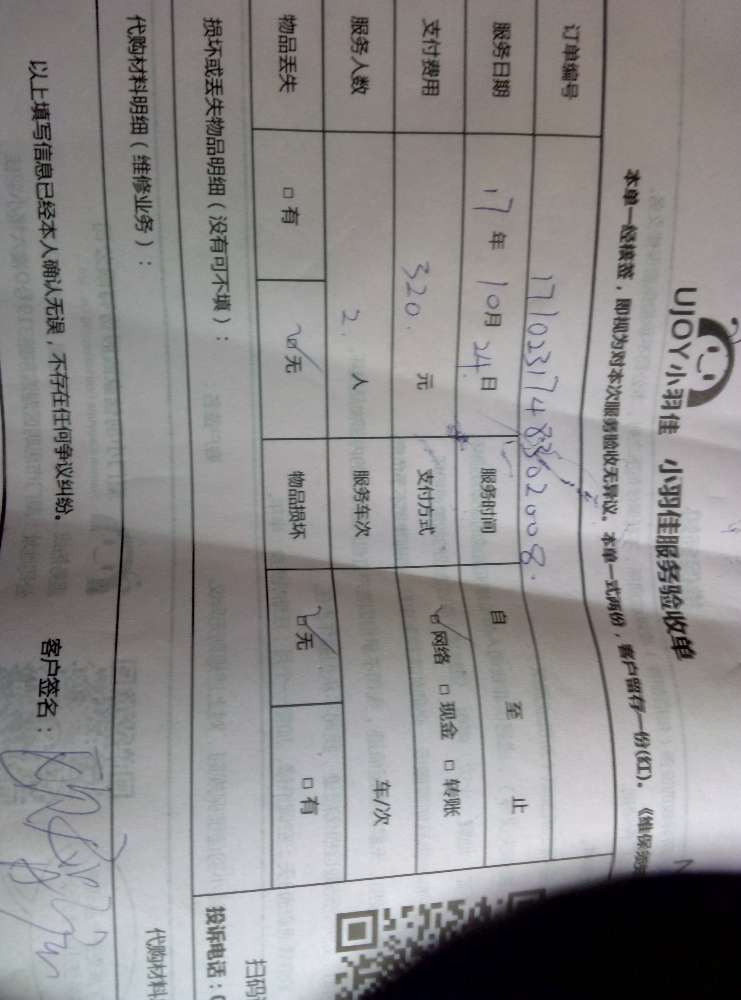 UJOY小羽佳 小羽佳服务验收单
本单一经核签，即视为对本次服务验收无异议。本单一式两份，客户留存一份(红)。《维保须
订单编号 17102317483302008.
服务日期 17年 10月 24日 服务时间 自 至 止
支付费用 320. 元 支付方式 ☑网络 □现金 □转账
服务人数 2. 人 服务车次 车/次
物品丢失 □有 ☑无 物品损坏 ☑无 □有
损坏或丢失物品明细（没有可不填）：
投诉电话：
代购材料明细（维修业务）：
代购材料
以上填写信息已经本人确认无误，不存在任何争议纠纷。 客户签名：
扫码